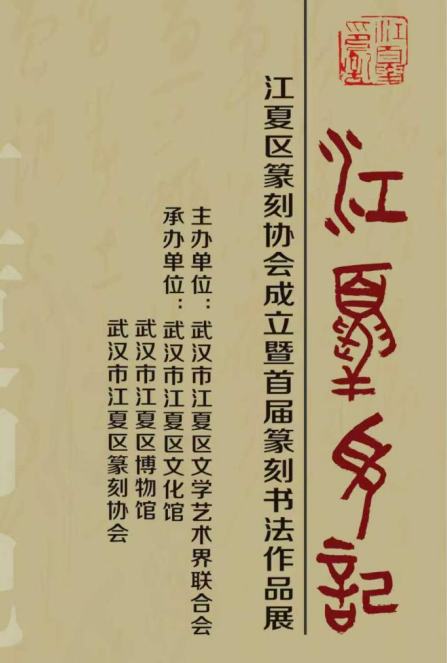 江夏印記
江夏区篆刻协会成立暨首届篆刻书法作品展
主办单位：武汉市江夏区文学艺术界联合会
承办单位：武汉市江夏区文化馆
武汉市江夏区博物馆
武汉市江夏区篆刻协会